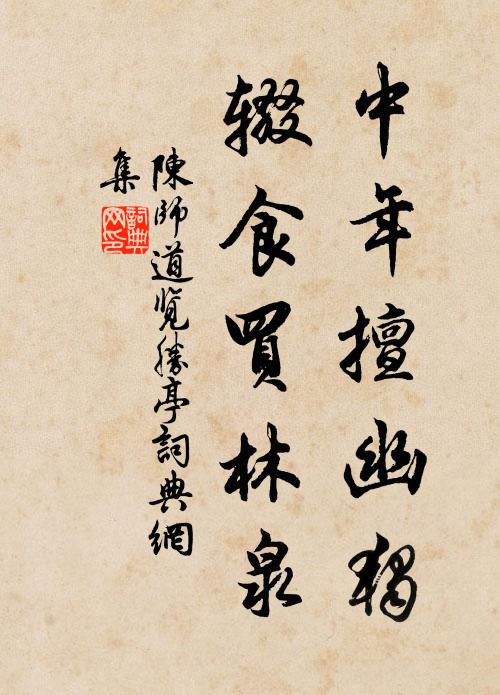 中年擅幽独
辍食買林泉
陳師道覽勝亭詞典網
集
詞典
网印